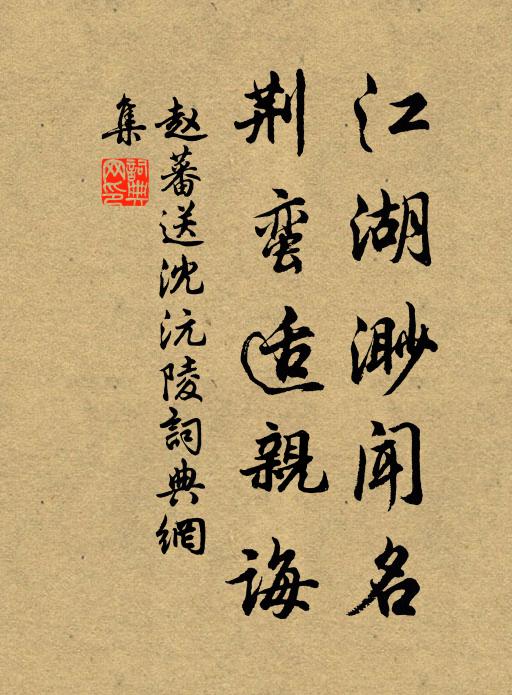 江湖渺闻名
荆蛮适親诲
赵蕃送沈沅陵詞典網
集
詞典网印